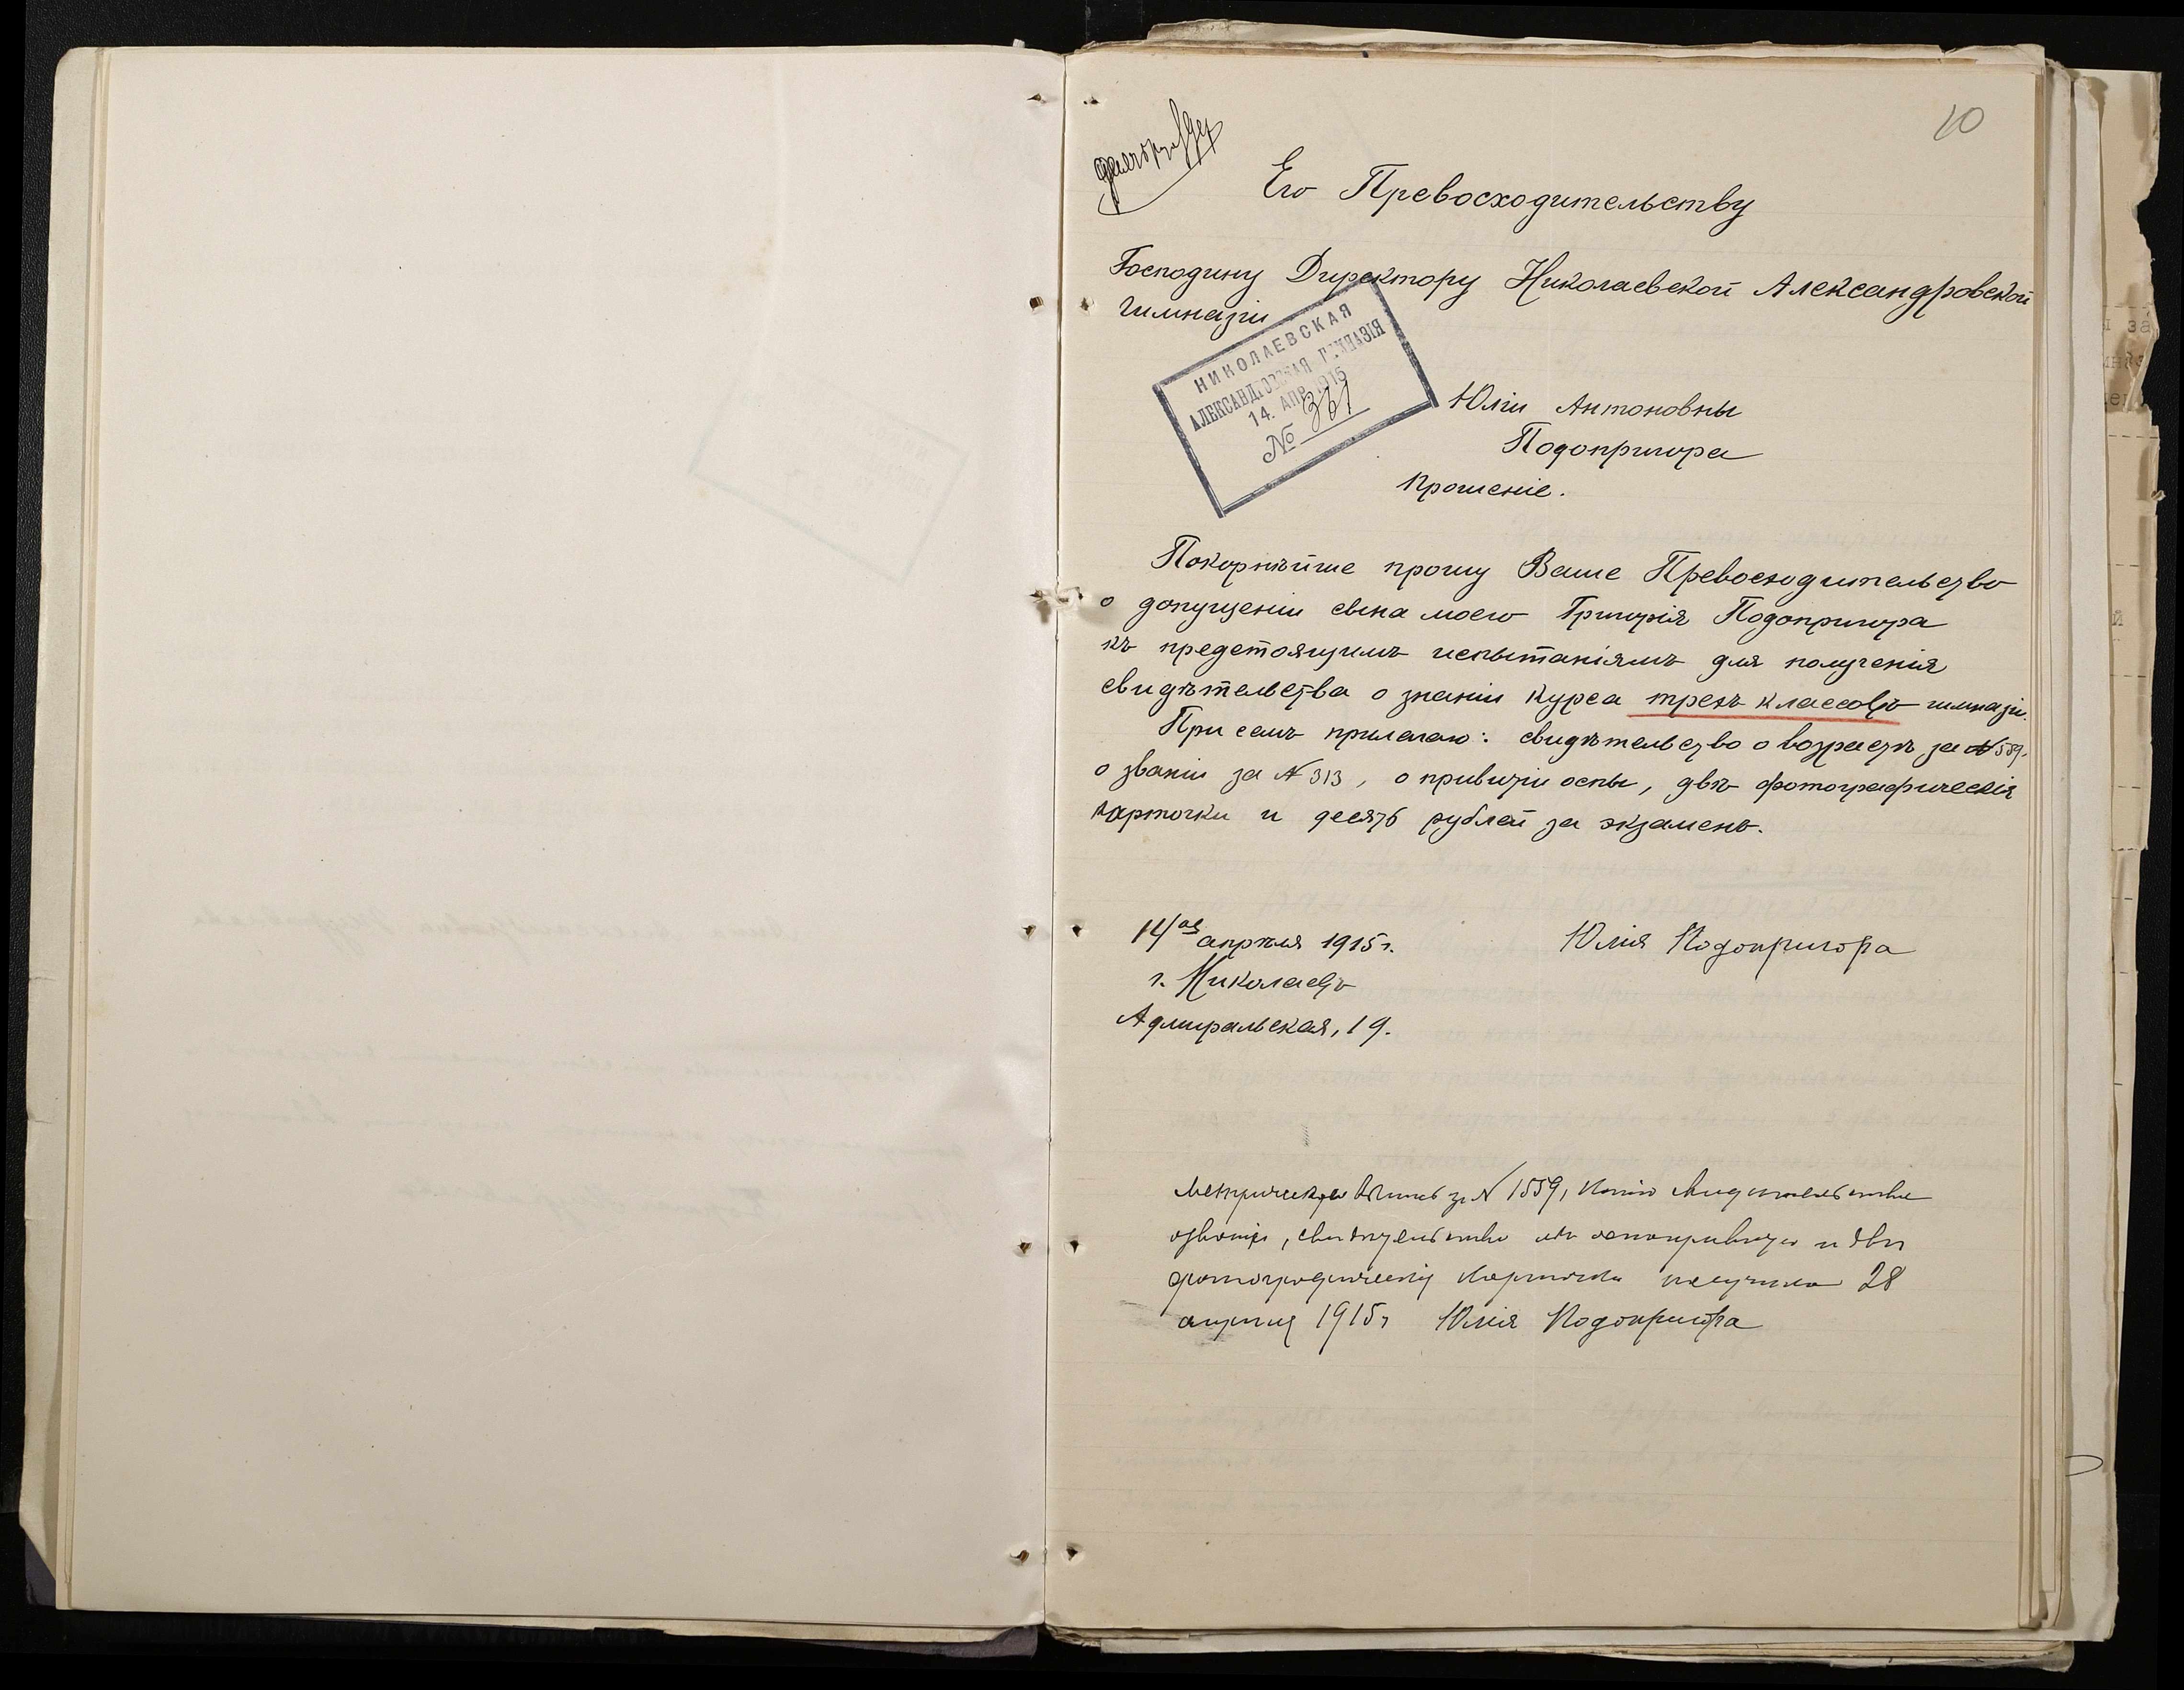 10
Его Превосходительству
Господину Директору Николаевской Александровской
гимназіи
НИКОЛАЕВСКАЯ
АЛЕКСАНДРОВСКАЯ ГИМНАЗІЯ
14. АПР. 1915
№ 361
Юліи Антоновны
Подопригора
Прошеніе.
Покорнѣйше прошу Ваше Превосходительство
о допущеніи сына моего Григорія Подопригора
къ предстоящимъ испытаніямъ для полученія
свидѣтельства о знаніи курса трехъ классовъ гимназіи.
При семъ прилагаю: свидѣтельство о возрастѣ за №
о званіи за № 313, о привитіи оспы, двѣ фотографическія
карточки и десять рублей за экзаменъ.
14ое апрѣля 1915 г.
Юлія Подопригора
г. Николаевъ
Адмиральская, 19.
Метрическую Выпись за № 1559, Копію Свидѣтельства
о званіи, свидѣтельство объ оспопрививаніи и двѣ
фотографическія карточки получила 28
апрѣля 1915 г Юлія Подопригора